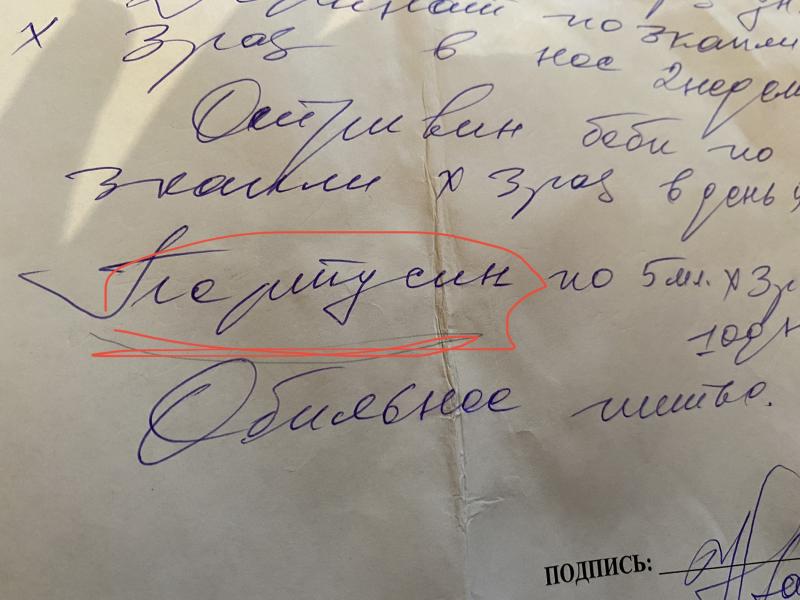 по 3 капли
х 3 раз в нос 2 недел
Отривин беби по
3 капли х 3 раз в день
Пертусин по 5 мл. х 3 р
10 дн
Обильное питье.
ПОДПИСЬ: